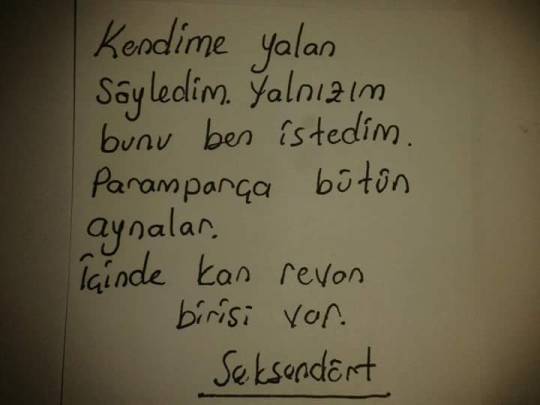 Kendime yalan
Söyledim. Yalnızım
bunu ben istedim.
Paramparça bütün
aynalar.
İçinde kan revan
birisi var.
Seksendört